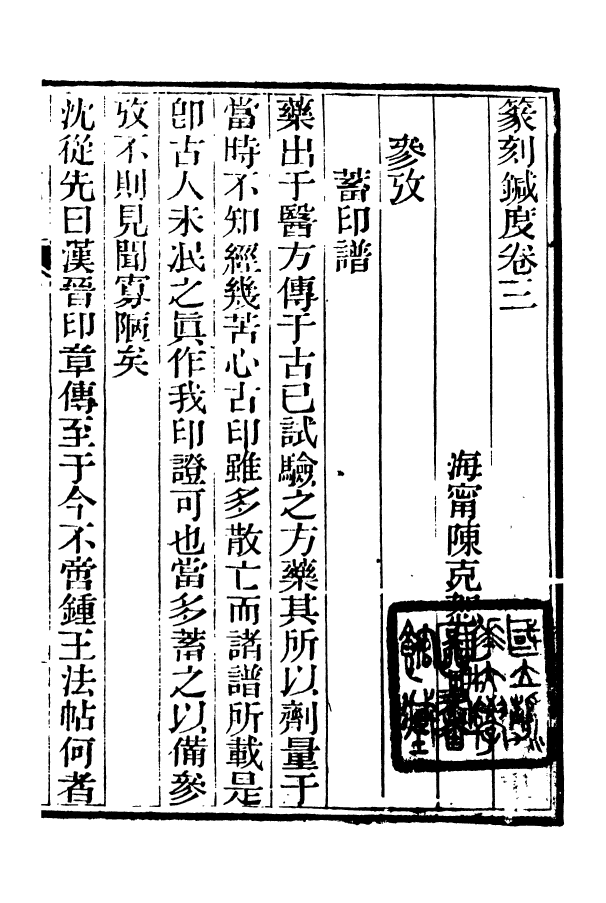 篆刻鍼度卷三
海甯陳克恕
參攷
蓄印譜
藥出于醫方傳于古已試驗之方藥其所以劑量于
當時不知經幾苦心古印雖多散亡而諸譜所載是
卽古人未泯之眞作我印證可也當多蓄之以備參
攷不則見聞寡陋矣
沈從先曰漢晉印章傳至于今不啻鍾王法帖何者